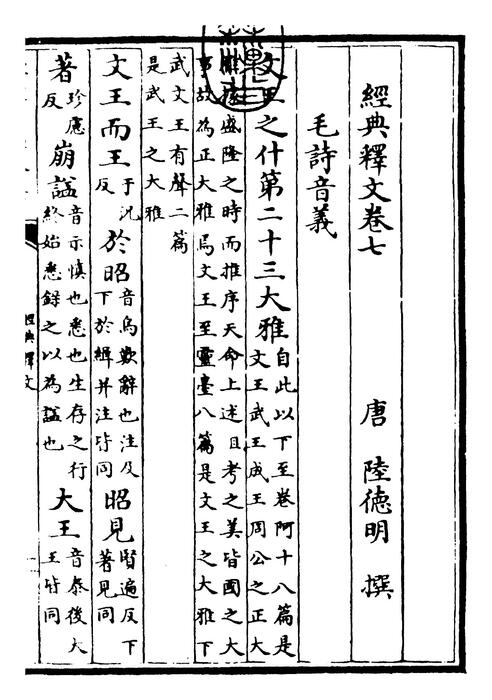 經典釋文卷七　唐　陸德明　撰
毛詩音義
文王之什第二十三大雅自此以下至卷阿十八篇是文王武王成王周公之正大
雅據盛隆之時而推序天命上述祖考之美皆國之大事故為正大雅焉文王至靈臺八篇是文王之大雅下
武文王有聲二篇是武王之大雅
文王而王于況反於昭音烏歎辭也注及下於緝并注皆同昭見賢遍反下著見同
著珍慮反崩謚音示慎也悉也生存之行終始悉錄之以為謚也大王音泰後大王皆同
經典釋文